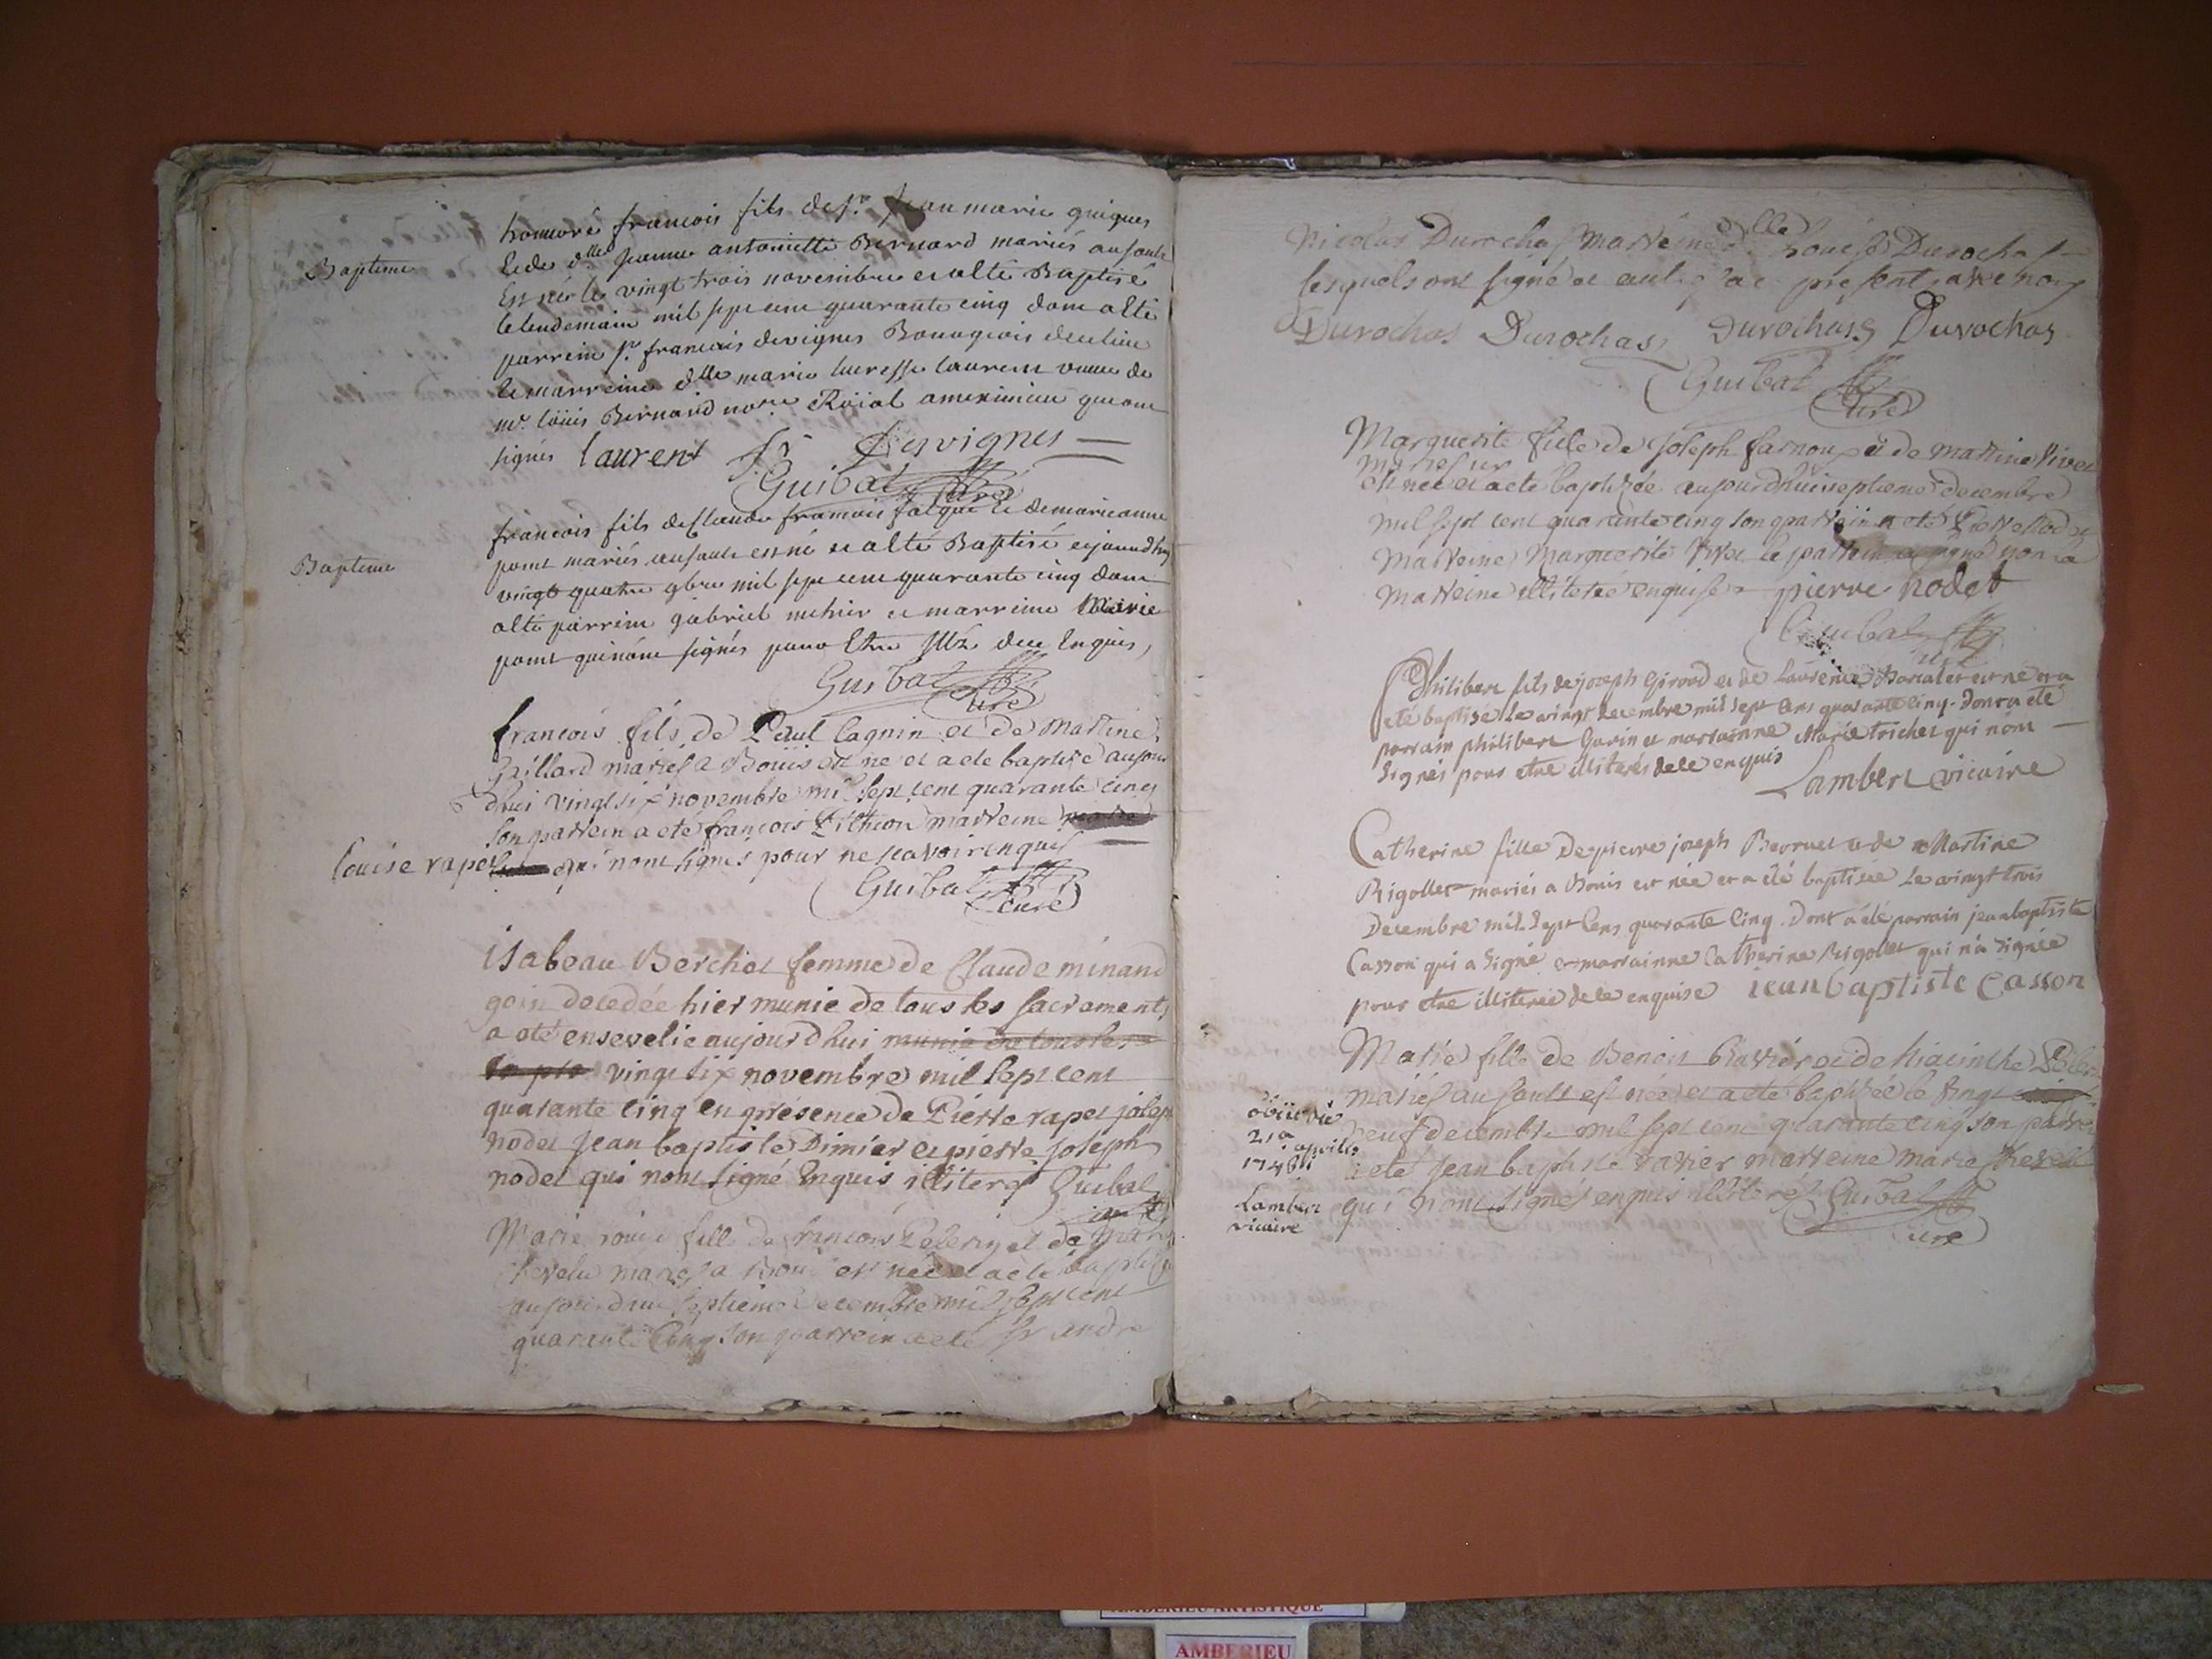 Bapteme
honnoré francois fils de sr Jean marie guigues
et de dlle Jeanne antoinette Bernard mariés au sault
est né le vingt trois novembre et a été Baptisé
le lendemain mil sept cent quarante cinq dont a été
parrein sr francois devignes Bourgeois
et marreine dlle marie lucresse laurent veuve de
mr. loüis Bernard nore Roïial a meximieu qui ont
signés laurent Desvignes
Guibal curé
Bapteme
francois fils de Claude francois falque et de marieanne
pont mariés au sault est né et a été Baptisé
vingt quatre 9bre mil sept cent quarante cinq dont
a été parrein gabriel et marreine Marie
pont qui n'ont signés pour être illit. de ce Enquis,
Guibal curé
francois fils de Paul Cagnin et de Martine
Gaillard mariés a Boüis est ne et a ete baptisé aujour
dhui vingt six novembre mil sept cent quarante cinq
son parrein a eté françois marreine
louise rapet qui n'ont signés pour ne scavoir enquis
Guibal curé
isabeau Berchet femme de Claude minand
goin decedée hier munie de tous les sacrements
a été ensevelie aujourdhui munie de tous les
vingt six novembre mil sept cent
quarante cinq en présence de Pierre rapet joseph
nodet jean baptiste Dimier et pierre joseph
nodet qui n'ont signé enquis illiterés Guibal
curé
Marie fille de francois Pelerin et de
mariés a Bouis est née et a eté baptisée
aujourdhui septieme decembre mil sept cent
quarante cinq son parrein a eté sr andré
Nicolas Durochas marreine dlle Louise Durochas
lesquels ont signé et present avec nous
Durochas Durochas Durochass Durochas
Guibal curé
Marguerite fille de joseph farnoux et de martine Vivet
mariés
est née et a eté baptisée aujourdhui septieme decembre
mil sept cent quarante cinq son parrein a eté Pierre Nodet
marreine Marguerite Vivet le parrein a signé non la
marreine illiterée enquise pierre nodet
Guibal
curé
Philibert fils de joseph Giroud et de Laurence est né et a
eté baptisé le vingt decembre mil sept cens quarante cinq. dont a eté
parrain philibert Gurin et marrainne Marie trichet qui n'ont
signés pour etre illiterés de ce enquis
Lambert vicaire
Catherine fille de pierre joseph et de Martine
Rigollet mariés a Bouis est née et a été baptisée le vingt trois
decembre mil sept cens quarante cinq. dont a été parrain jean baptiste
Casson qui a signé et marrainne Catherine Rigollet qui n'a signée
pour etre illiterée de ce enquise iean baptiste Casson
Marie fille de Benoit et de hiacinthe
mariés au sault est née et a eté baptisée le vingt
neuf decembre mil sept cent quarante cinq son parrein
a eté jean baptiste marreine marie
qui n'ont signés enquis illiterés Guibal
curé
obiit die
21a
aprilis
1746
Lambert
vicaire
AMBERIEU ARTISTIQUE
AMBERIEU